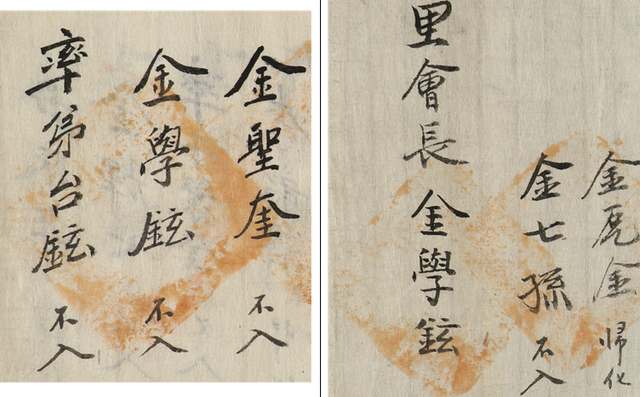 金虎金 帰化
金七孫 不入
里會長 金學鉉
金聖奎 不入
金學鉉 不入
率弟台鉉 不入